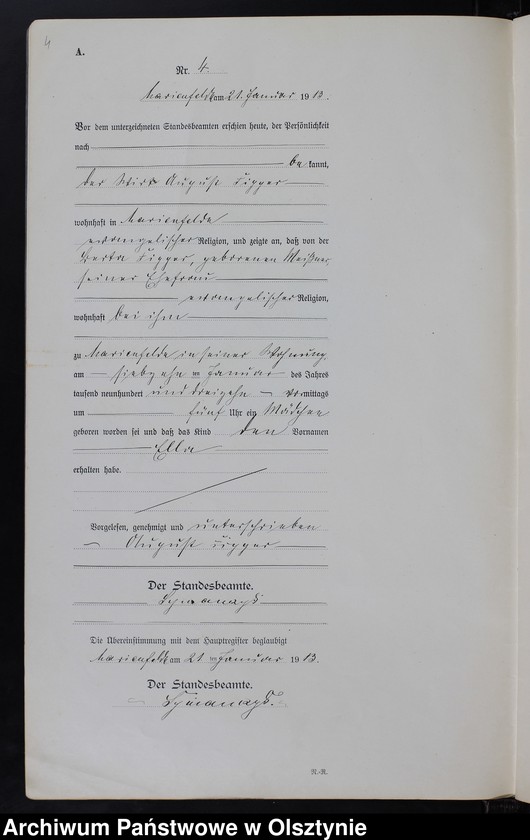 4
A.
Nr. 4.
Marienfelde am 21. Januar 1913.
Vor dem unterzeichneten Standesbeamten erschien heute, der Persönlichkeit
nach
be kannt,
der Wirt August
wohnhaft in Marienfelde
evangelischer Religion, und zeigte an, daß von der
Berta geborenen
seiner Ehefrau
evangelischer Religion,
wohnhaft bei ihm
zu Marienfelde in seiner Wohnung
am siebzehnten Januar des Jahres
tausend neunhundert und dreizehn Vormittags
um fünf Uhr ein Mädchen
geboren worden sei und daß das Kind den Vornamen
Ella
erhalten habe.
Vorgelesen, genehmigt und unterschrieben
August
Der Standesbeamte.
Die Übereinstimmung mit dem Hauptregister beglaubigt
Marienfelde am 21 ten Januar 1913.
Der Standesbeamte.
N.-R.
Archiwum Państwowe w Olsztynie